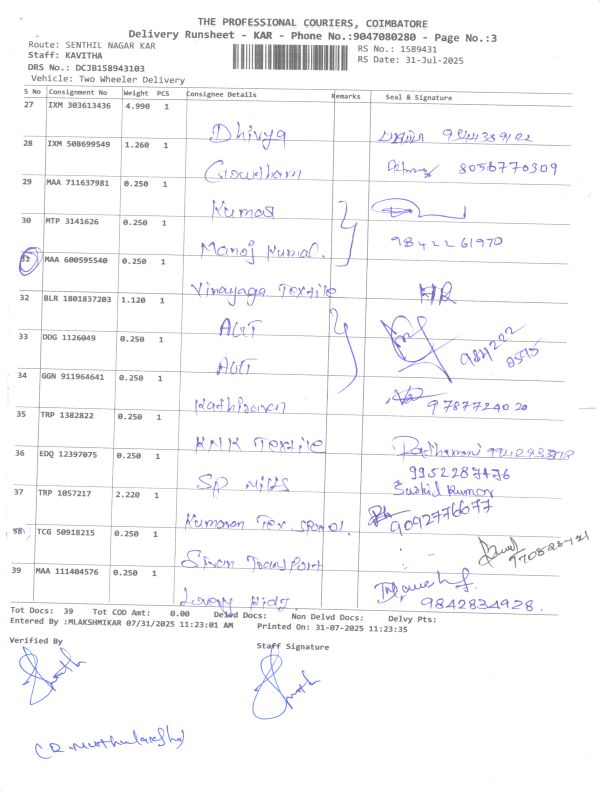 THE PROFESSIONAL COURIERS, COIMBATORE
Delivery Runsheet - KAR - Phone No.:9047080280 - Page No.:3
Route: SENTHIL NAGAR KAR
RS No.: 1589431
Staff: KAVITHA
RS Date: 31-Jul-2025
DRS No.: DCJB158943103
Vehicle: Two Wheeler Delivery
S No Consignment No Weight PCS Consignee Details Remarks Seal & Signature
27 IXM 303613436 4.990 1
Dhivya
28 IXM 508699549 1.260 1
Gowtham 8056770309
29 MAA 711637981 0.250 1
Kumar
30 MTP 3141626 0.250 1
Manoj Kumar. 9842261970
MAA 600595540 0.250 1
Vinayaga Textile
32 BLR 1801837203 1.120 1
33 DDG 1126049 0.250 1
34 GGN 911964641 0.250 1
Kathiravan 9787724020
35 TRP 1382822 0.250 1
KNK Textile
36 EDQ 12397075 0.250 1
9952287476
SP Mills Sushil Kumar
37 TRP 1057217 2.220 1
Kumaran Tex 9092776677
38 TCG 50918215 0.250 1
Sivan Transport
39 MAA 111404576 0.250 1
9842834928.
Tot Docs: 39 Tot COD Amt: 0.00 Delvd Docs: Non Delvd Docs: Delvy Pts:
Entered By :MLAKSHMIKAR 07/31/2025 11:23:01 AM Printed On: 31-07-2025 11:23:35
Verified By
Staff Signature